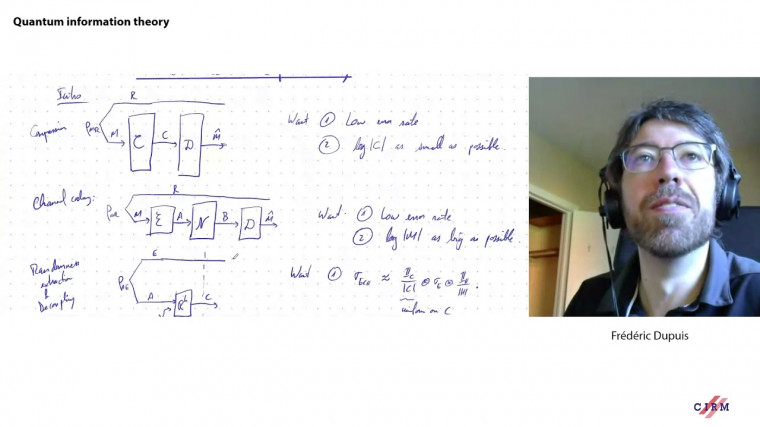 Quantum information theory
Intro
R
Compression
ρMR
M
C
D
M̂
Want ① Low error rate
② log |C| as small as possible.
Channel coding:
R
ρMR
M
Ɛ
A
N
B
D
M̂
Want ① Low error rate
② log |M| as big as possible.
Randomness
extraction
&
Decoupling
E
ρAE
A
C
Want ①
≈
⊗
⊗
uniform on C
Frédéric Dupuis
CIRM